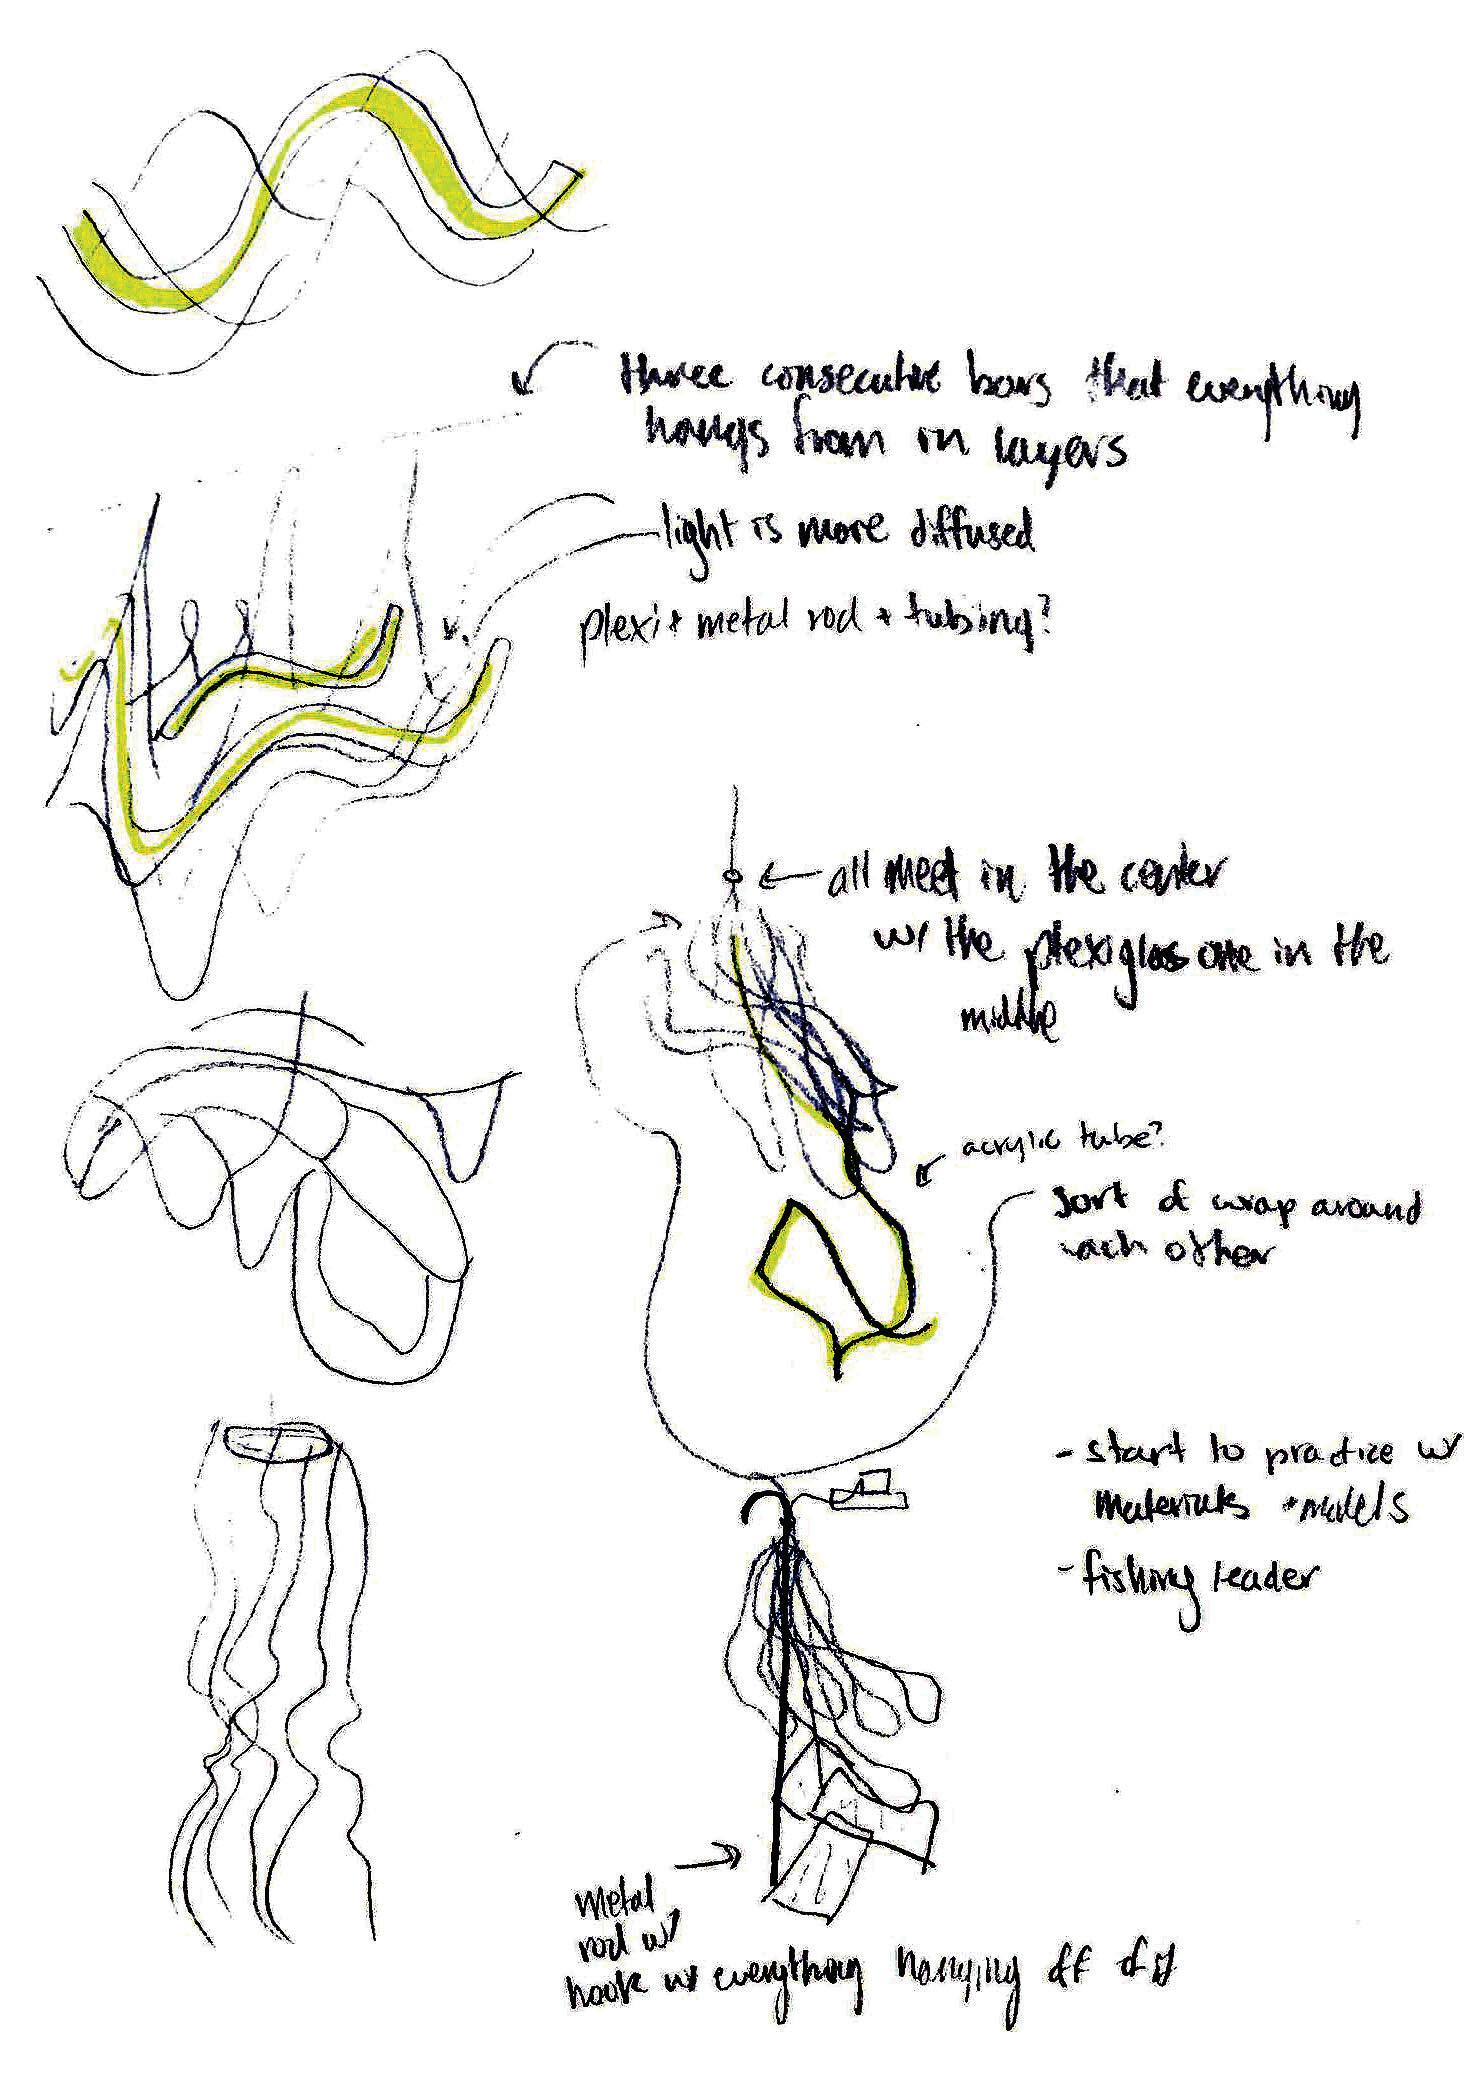 three consecutive bars that everything
hangs from in layers
light is more diffused
plexi + metal rod + tubing?
all meet in the center
w/ the plexiglass one in the
middle
acrylic tube?
sort of wrap around
each other
- start to practice w/
materials + models
- fishing leader
metal
rod w/
hook w/ everything hanging off of it